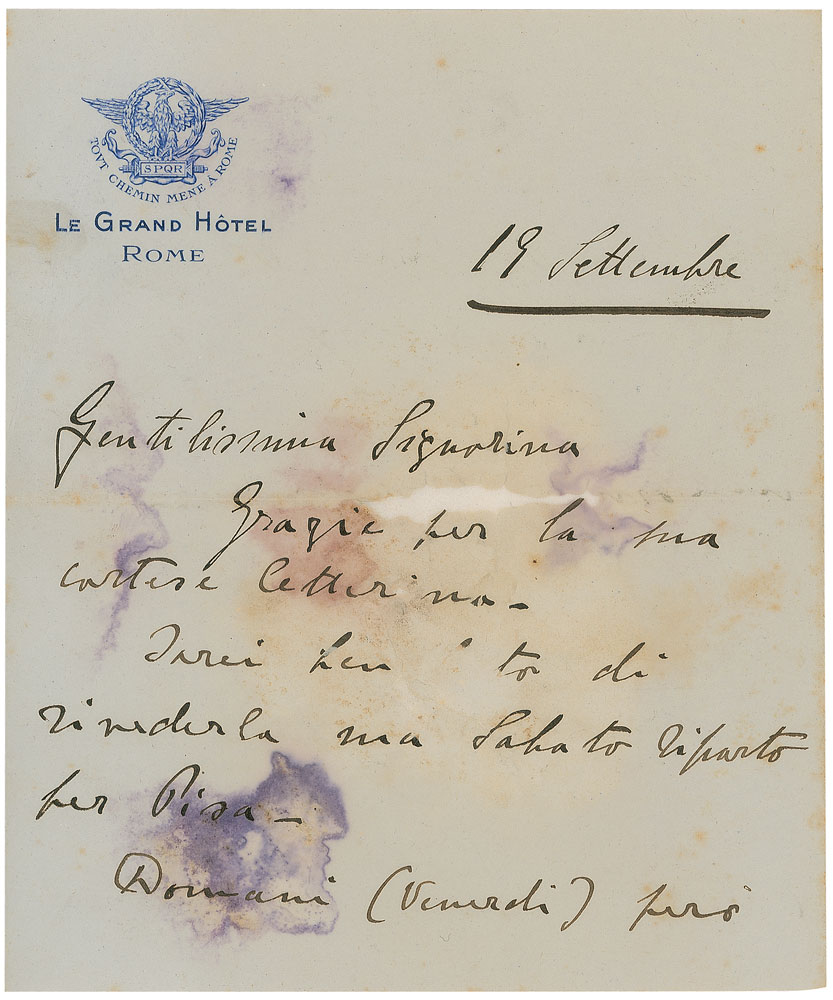 SPQR
TOVT CHEMIN MENE À ROME
LE GRAND HÔTEL
ROME
19 Settembre
Gentilissima Signorina
Grazie per la sua
cortese letterina -
Sarei ben di
rivederla ma Sabato riparto
per Pisa -
Domani (Venerdì) però